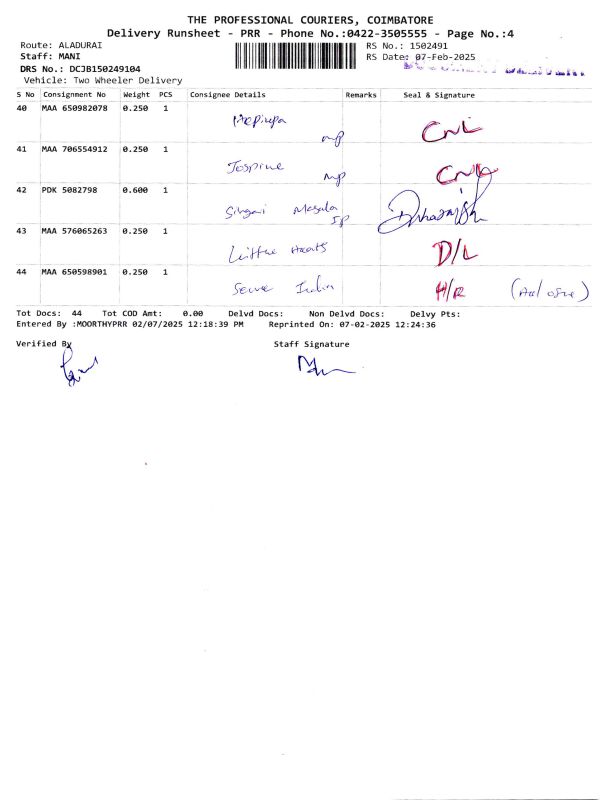 THE PROFESSIONAL COURIERS, COIMBATORE
Delivery Runsheet - PRR - Phone No.:0422-3505555 - Page No.:4
Route: ALADURAI RS No.: 1502491
Staff: MANI RS Date: 07-Feb-2025
DRS No.: DCJB150249104
Vehicle: Two Wheeler Delivery
S No Consignment No Weight PCS Consignee Details Remarks Seal & Signature
40 MAA 650982078 0.250 1
MP
41 MAA 706554912 0.250 1
MP
42 PDK 5082798 0.600 1
Masala
43 MAA 576065263 0.250 1
D/L
44 MAA 650598901 0.250 1
Serve India H/R
Tot Docs: 44 Tot COD Amt: 0.00 Delvd Docs: Non Delvd Docs: Delvy Pts:
Entered By :MOORTHYPRR 02/07/2025 12:18:39 PM Reprinted On: 07-02-2025 12:24:36
Verified By Staff Signature